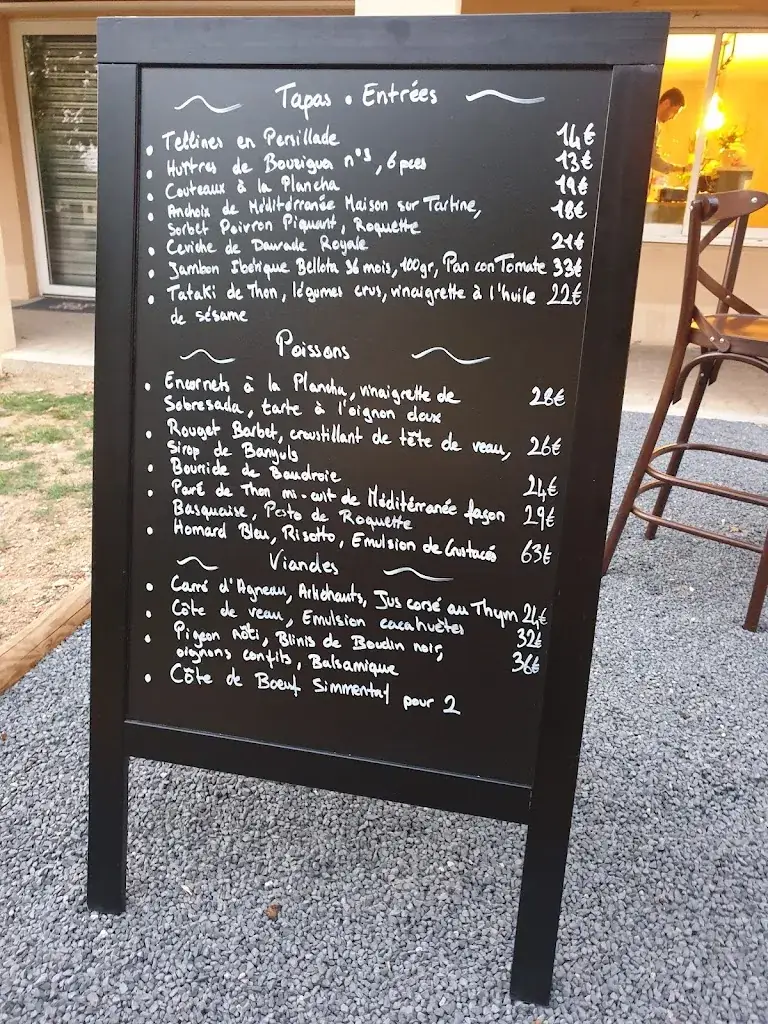 Tapas • Entrées
• Tellines en Persillade 14€
• Huîtres de Bouzigues n°3, 6 pces 13€
• Couteaux à la Plancha 19€
• Anchois de Méditérranée Maison sur Tartine, 18€
Sorbet Poivron Piquant, Roquette
• Ceviche de Daurade Royale 21€
• Jambon Ibérique Bellota 36 mois, 100gr, Pan con Tomate 33€
• Tataki de Thon, légumes crus, vinaigrette à l'huile 22€
de sésame
Poissons
• Encornets à la Plancha, vinaigrette de 28€
Sobresada, tarte à l'oignon doux
• Rouget Barbet, croustillant de tête de veau, 26€
Sirop de Banyuls
• Bourride de Baudroie 24€
• Pavé de Thon mi-cuit de Méditérranée façon 29€
Basquaise, Pesto de Roquette
• Homard Bleu, Risotto, Emulsion de Crustacés 63€
Viandes
• Carré d'Agneau, Artichauts, Jus corsé au Thym 24€
• Côte de veau, Emulsion cacahuètes 32€
• Pigeon rôti, Blinis de Boudin noir, 36€
oignons confits, Balsamique
• Côte de Boeuf Simmental pour 2